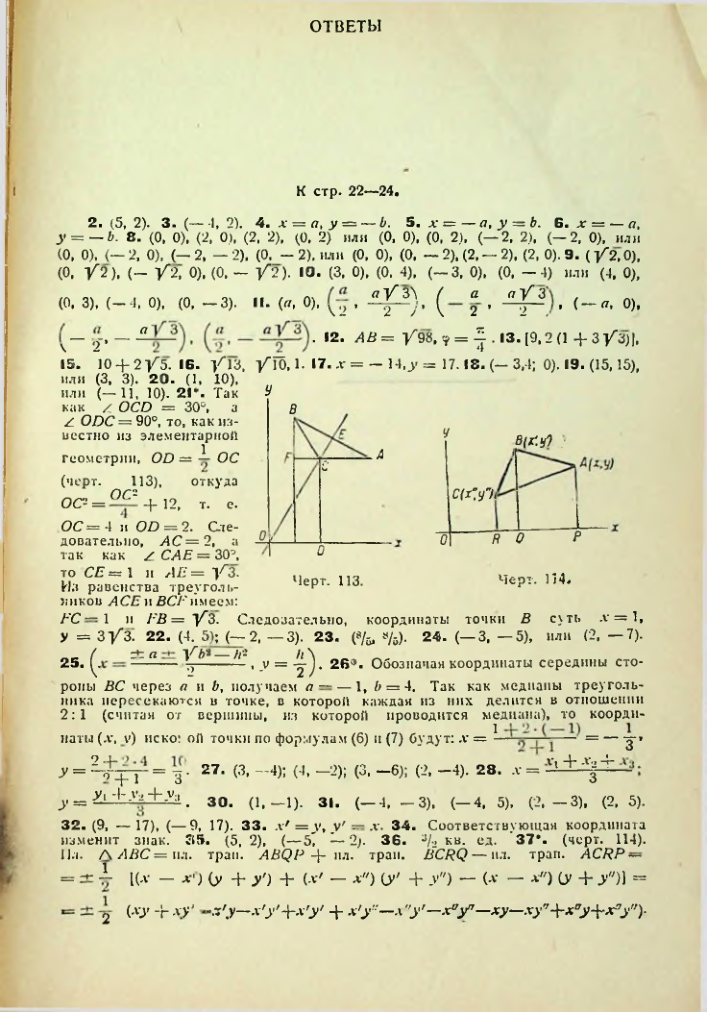 ОТВЕТЫ
К стр. 22—24.
2. (5, 2). 3. (—4, 2). 4. x = a, y = — b. 5. x = — a, y = b. 6. x = — a,
y = — b. 8. (0, 0), (2, 0), (2, 2), (0, 2) или (0, 0), (0, 2), (—2, 2), (—2, 0), или
(0, 0), (—2, 0), (—2, —2), (0, —2), или (0, 0), (0, —2), (2, —2), (2, 0). 9. (√2, 0),
(0, √2), (— √2, 0), (0, — √2). 10. (3, 0), (0, 4), (—3, 0), (0, —4) или (4, 0),
(0, 3), (—4, 0), (0, —3). 11. (a, 0), (a/2, a√3/2), (— a/2, a√3/2), (—a, 0),
(— a/2, — a√3/2), (a/2, — a√3/2). 12. AB = √98, φ = π/4. 13. [9,2 (1 + 3√3)],
15. 10 + 2√5. 16. √13, √10, 1. 17. x = — 14, y = 17. 18. (— 3,4; 0). 19. (15, 15),
или (3, 3). 20. (1, 10),
или (— 11, 10). 21*. Так
как ∠ OCD = 30°, а
∠ ODC = 90°, то, как из-
вестно из элементарной
геометрии, OD = 1/2 OC
(черт. 113), откуда
OC² = OC²/4 + 12, т. е.
OC = 4 и OD = 2. Сле-
довательно, AC = 2, а
так как ∠ CAE = 30°,
то CE = 1 и AE = √3.
Из равенства треуголь-
ников ACE и BCF имеем:
y
B
E
F
C
A
O
D
x
Черт. 113.
y
B(x',y')
A(x,y)
C(x'',y'')
O
R
Q
P
x
Черт. 114.
FC = 1 и FB = √3. Следовательно, координаты точки B суть x = 1,
y = 3√3. 22. (4, 5); (— 2, —3). 23. (8/5, 8/5). 24. (—3, —5), или (2, —7).
25. (x = (± a ± √b² — h²)/2, y = h/2). 26*. Обозначая координаты середины сто-
роны BC через a и b, получаем a = — 1, b = 4. Так как медианы треуголь-
ника пересекаются в точке, в которой каждая из них делится в отношении
2 : 1 (считая от вершины, из которой проводится медиана), то коорди-
наты (x, y) искомой точки по формулам (6) и (7) будут: x = (1 + 2 · (— 1))/(2 + 1) = — 1/3,
y = (2 + 2 · 4)/(2 + 1) = 10/3. 27. (3, —4); (4, —2); (3, —6); (2, —4). 28. x = (x₁ + x₂ + x₃)/3;
y = (y₁ + y₂ + y₃)/3. 30. (1, —1). 31. (—4, —3), (—4, 5), (2, —3), (2, 5).
32. (9, — 17), (— 9, 17). 33. x' = y, y' = x. 34. Соответствующая координата
изменит знак. 35. (5, 2), (—5, —2). 36. кв. ед. 37*. (черт. 114).
Пл. △ ABC = пл. трап. ABQP + пл. трап. BCRQ — пл. трап. ACRP =
= ± 1/2 [(x — x') (y + y') + (x' — x'') (y' + y'') — (x — x'') (y + y'')] =
= ± 1/2 (xy + xy' — x'y—x'y'+x'y' + x'y''—x''y'—x''y''—xy—xy''+x''y+x''y'').